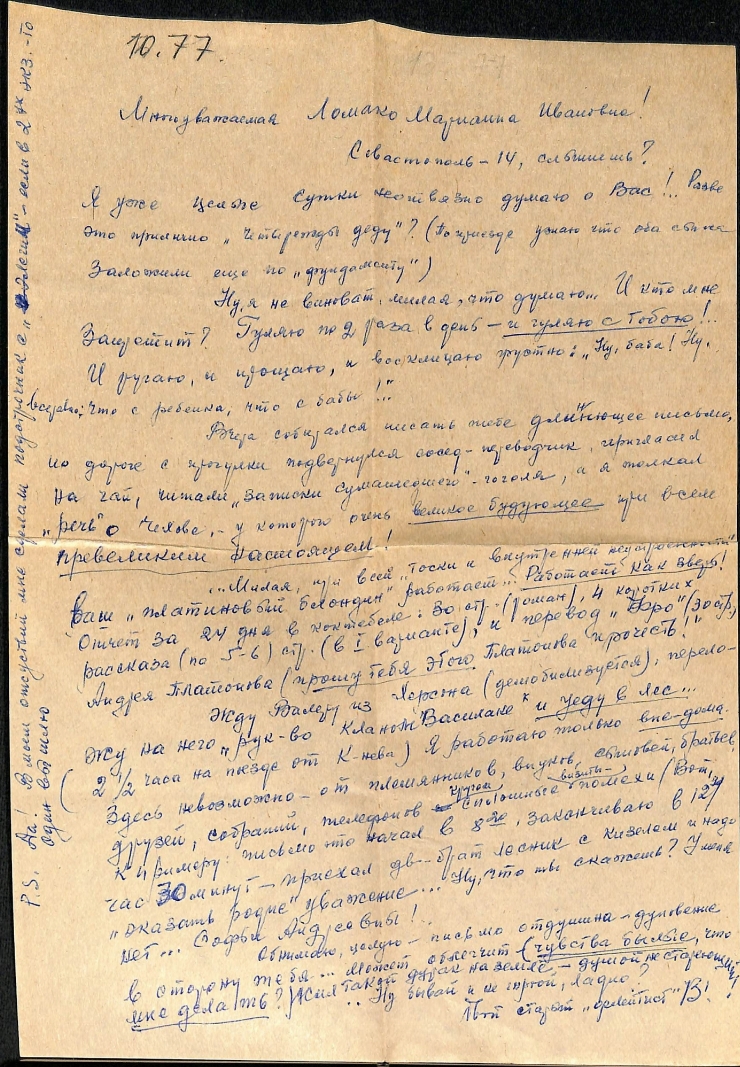 10.77.
Многоуважаемая Ломако Марианна Ивановна!
Севастополь-14, слышишь?
Я уже целые сутки неотвязно думаю о Вас!.. Разве
это прилично „четырежды деду"? (По приезде узнаю что оба сына
заложили еще по „фундаменту")
Ну, я не виноват, милая, что думаю... И кто мне
запретит? Гуляю по 2 раза в день – и гуляю с тобою!..
И ругаю, и прощаю, и восклицаю грустно: „Ну, баба! Ну,
что с ребенка, что с бабы!.."
Вчера собирался писать тебе длиннющее письмо,
но дороге с прогулки подвернулся сосед-переводчик, пригласил
на чай, читали „Записки сумасшедшего" Гоголя, и я толкал
„речь" о Чехове, – у которого очень великое будующее при всем
превеликим настоящем!
...Милая, при всей „тоски и внутренней неустроенности"
Ваш „платиновый блондин" работает... Работает как зверь!
Отчет за 24 дня в Коктебеле: 30 стр. (роман), 4 коротких
рассказа (по 5-6) стр. (в I варианте), и перевод „Фро" (30стр),
Андрея Платонова (прошу тебя этого Платонова прочесть!"
Жду Валеру из Херсона (демобилизуется), перело-
жу на него „рук-во Кланом Василаке" и уеду в лес...
( 2 1/2 часа на поезде от К-нева) Я работаю только вне-дома.
Здесь невозможно – от племянников, внуков, сыновей, братьев,
друзей, собраний, телефонов – сплошные помехи (Вот,
к примеру: письмо это начал в 8, заканчиваю в 12
час 30 минут – приехал дв-брат лесник с кизелом и надо
„оказать родне" уважение... Ну, что ты скажешь? У меня
нет... Софьи Андреевны!..
Обнимаю, целую – письмо отдушина – дуновение
в сторону тебя... Может облегчит (чувства былые, что
мне делать?) Жил такой дурак на земле, – душой не стареющий!
... Ну бывай и не горюй, ладно?
Твой старый В!
P.S. Да! В моем отсутствий мне сделали подстрочник с „Элегии" – если в 2х экз. – то
один вышлю